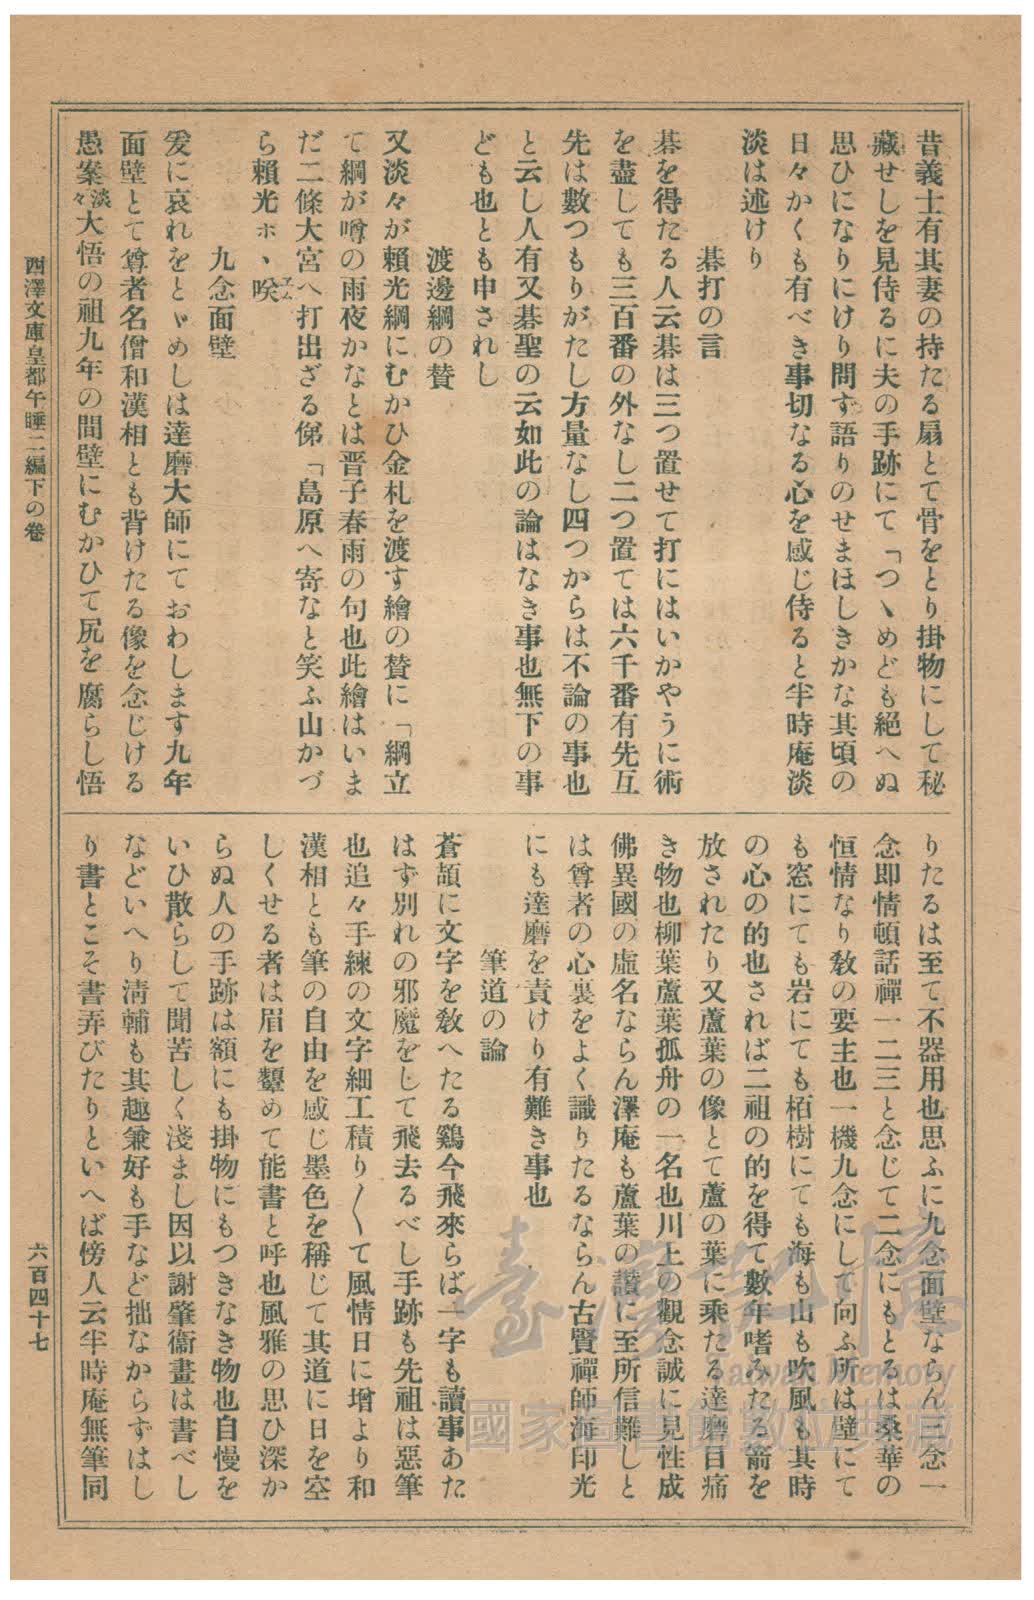 昔義士有其妻の持たる扇とて骨をとり掛物にして秘
藏せしを見侍るに夫の手跡にて「つゝめども絕へぬ
思ひになりにけり問ず語りのせまほしきかな其頃の
日々かくも有べき事切なる心を感じ侍ると半時庵淡
淡は述けり
碁打の言
碁を得たる人云碁は三つ置せて打にはいかやうに術
を盡しても三百番の外なし二つ置ては六千番有先互
先は數つもりがたし方量なし四つからは不論の事也
と云し人有又碁聖の云如此の論はなき事也無下の事
ども也とも申されし
渡邊綱の贊
又淡々が賴光綱にむかひ金札を渡す繪の贊に「綱立
て綱が噂の雨夜かなとは晋子春雨の句也此繪はいま
だ二條大宮へ打出ざる俤「島原へ寄なと笑ふ山かづ
ら賴光ホヽ唉
九念面壁
爰に哀れをとゞめしは達磨大師にておわします九年
面壁とて尊者名僧和漢相とも背けたる像を念じける
愚案淡々大悟の祖九年の間壁にむかひて尻を腐らし悟
りたるは至て不器用也思ふに九念面壁ならん三念一
念即情頓話禪一二三と念じて二念にもとるは桑華の
恒情なり敎の要主也一機九念にして向ふ所は壁にて
も窓にても岩にても栢樹にても海も山も吹風も其時
の心の的也されば二祖の的を得て數年嗜みたる箭を
放されたり又蘆葉の像とて蘆の葉に乘たる達磨目痛
き物也柳葉蘆葉孤舟の一名也川上の觀念誠に見性成
佛異國の虛名ならん澤庵も蘆葉の讚に至所信難しと
は尊者の心裏をよく識りたるならん古賢禪師海印光
にも達磨を責けり有難き事也
筆道の論
蒼頡に文字を敎へたる鷄今飛來らば一字も讀事あた
はず別れの邪魔をして飛去るべし手跡も先祖は惡筆
也追々手練の文字細工積り〳〵て風情日に增より和
漢相とも筆の自由を感じ墨色を稱じて其道に日を空
しくせる者は眉を顰めて能書と呼也風雅の思ひ深か
らぬ人の手跡は額にも掛物にもつきなき物也自慢を
いひ散らして聞苦しく淺まし因以謝肇衞畫は書べし
などいへり淸輔も其趣兼好も手など拙なからずはし
り書とこそ書弄びたりといへば傍人云半時庵無筆同
西澤文庫皇都午睡二編下の卷
六百四十七
臺灣記憶
Taiwan Memory
國家圖書館數位典藏